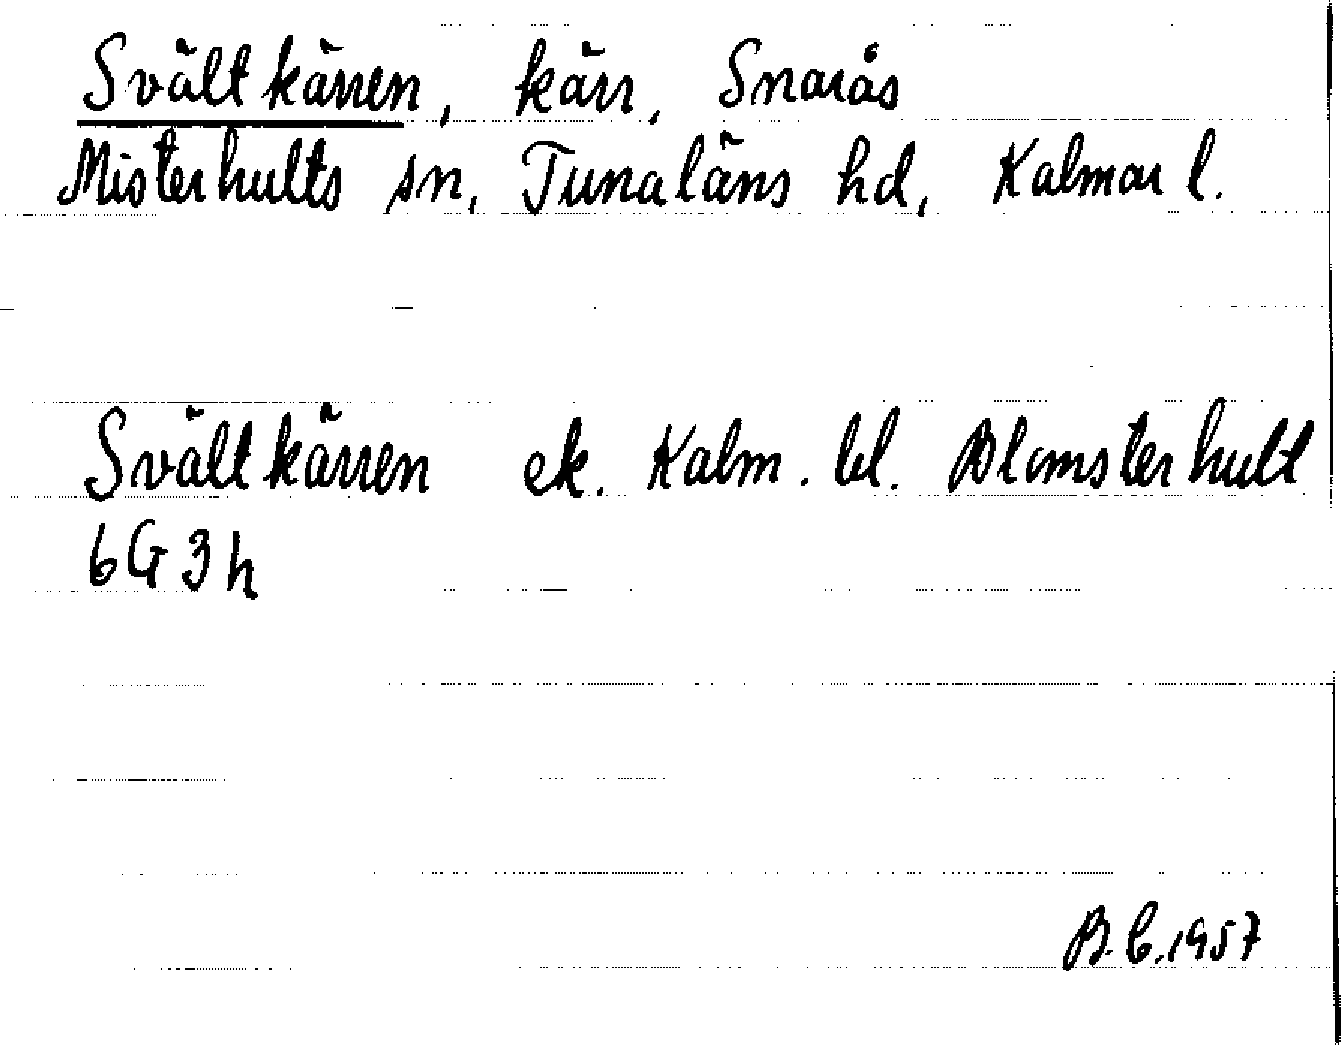 Svältkärren, kärr, Snarås
Misterhults sn, Tunaläns hd, Kalmar l.
Svältkärren ek. Kalm. bl. Blomsterhult
6G3h
B.C.1957